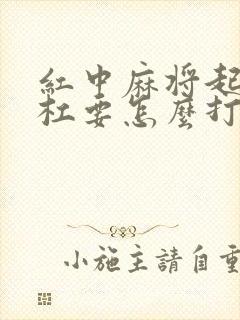 紅中麻将起
杠要怎麼打
小施主請自重